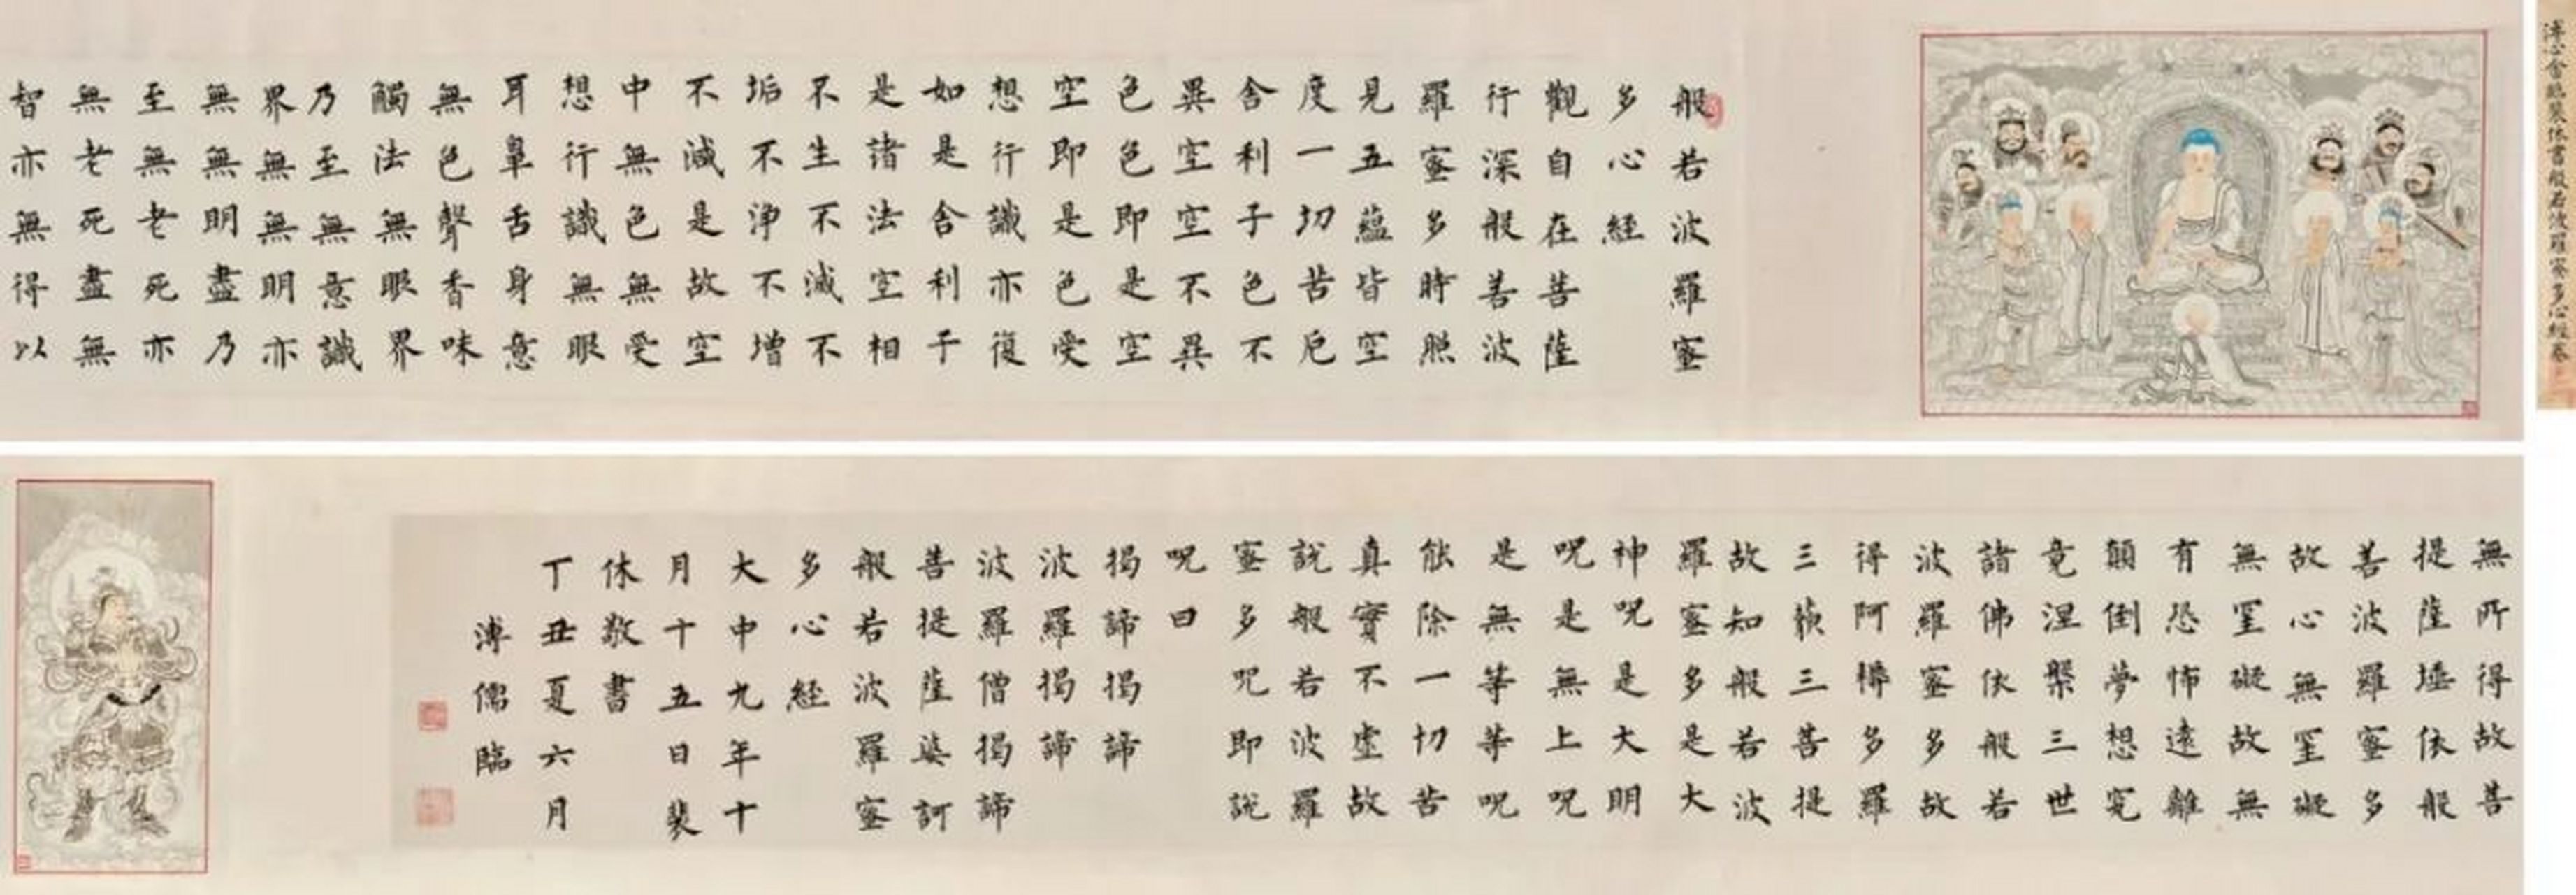 溥心畬臨裴休書般若波羅蜜多心經卷
般若波羅蜜
多心經
觀自在菩薩
行深般若波
羅蜜多時照
見五蘊皆空
度一切苦厄
舍利子色不
異空空不異
色色即是空
空即是色受
想行識亦復
如是舍利子
是諸法空相
不生不滅不
垢不淨不增
不減是故空
中無色無受
想行識無眼
耳鼻舌身意
無色聲香味
觸法無眼界
乃至無意識
界無無明亦
無無明盡乃
至無老死亦
無老死盡無
智亦無得以
無所得故菩
提薩埵依般
若波羅蜜多
故心無罣礙
無罣礙故無
有恐怖遠離
顛倒夢想究
竟涅槃三世
諸佛依般若
波羅蜜多故
得阿耨多羅
三藐三菩提
故知般若波
羅蜜多是大
神呪是大明
呪是無上呪
是無等等呪
能除一切苦
真實不虛故
說般若波羅
蜜多呪即說
呪曰
揭諦揭諦
波羅揭諦
波羅僧揭諦
菩提薩婆訶
般若波羅蜜
多心經
大中九年十
月十五日裴
休敬書
丁丑夏六月
溥儒臨